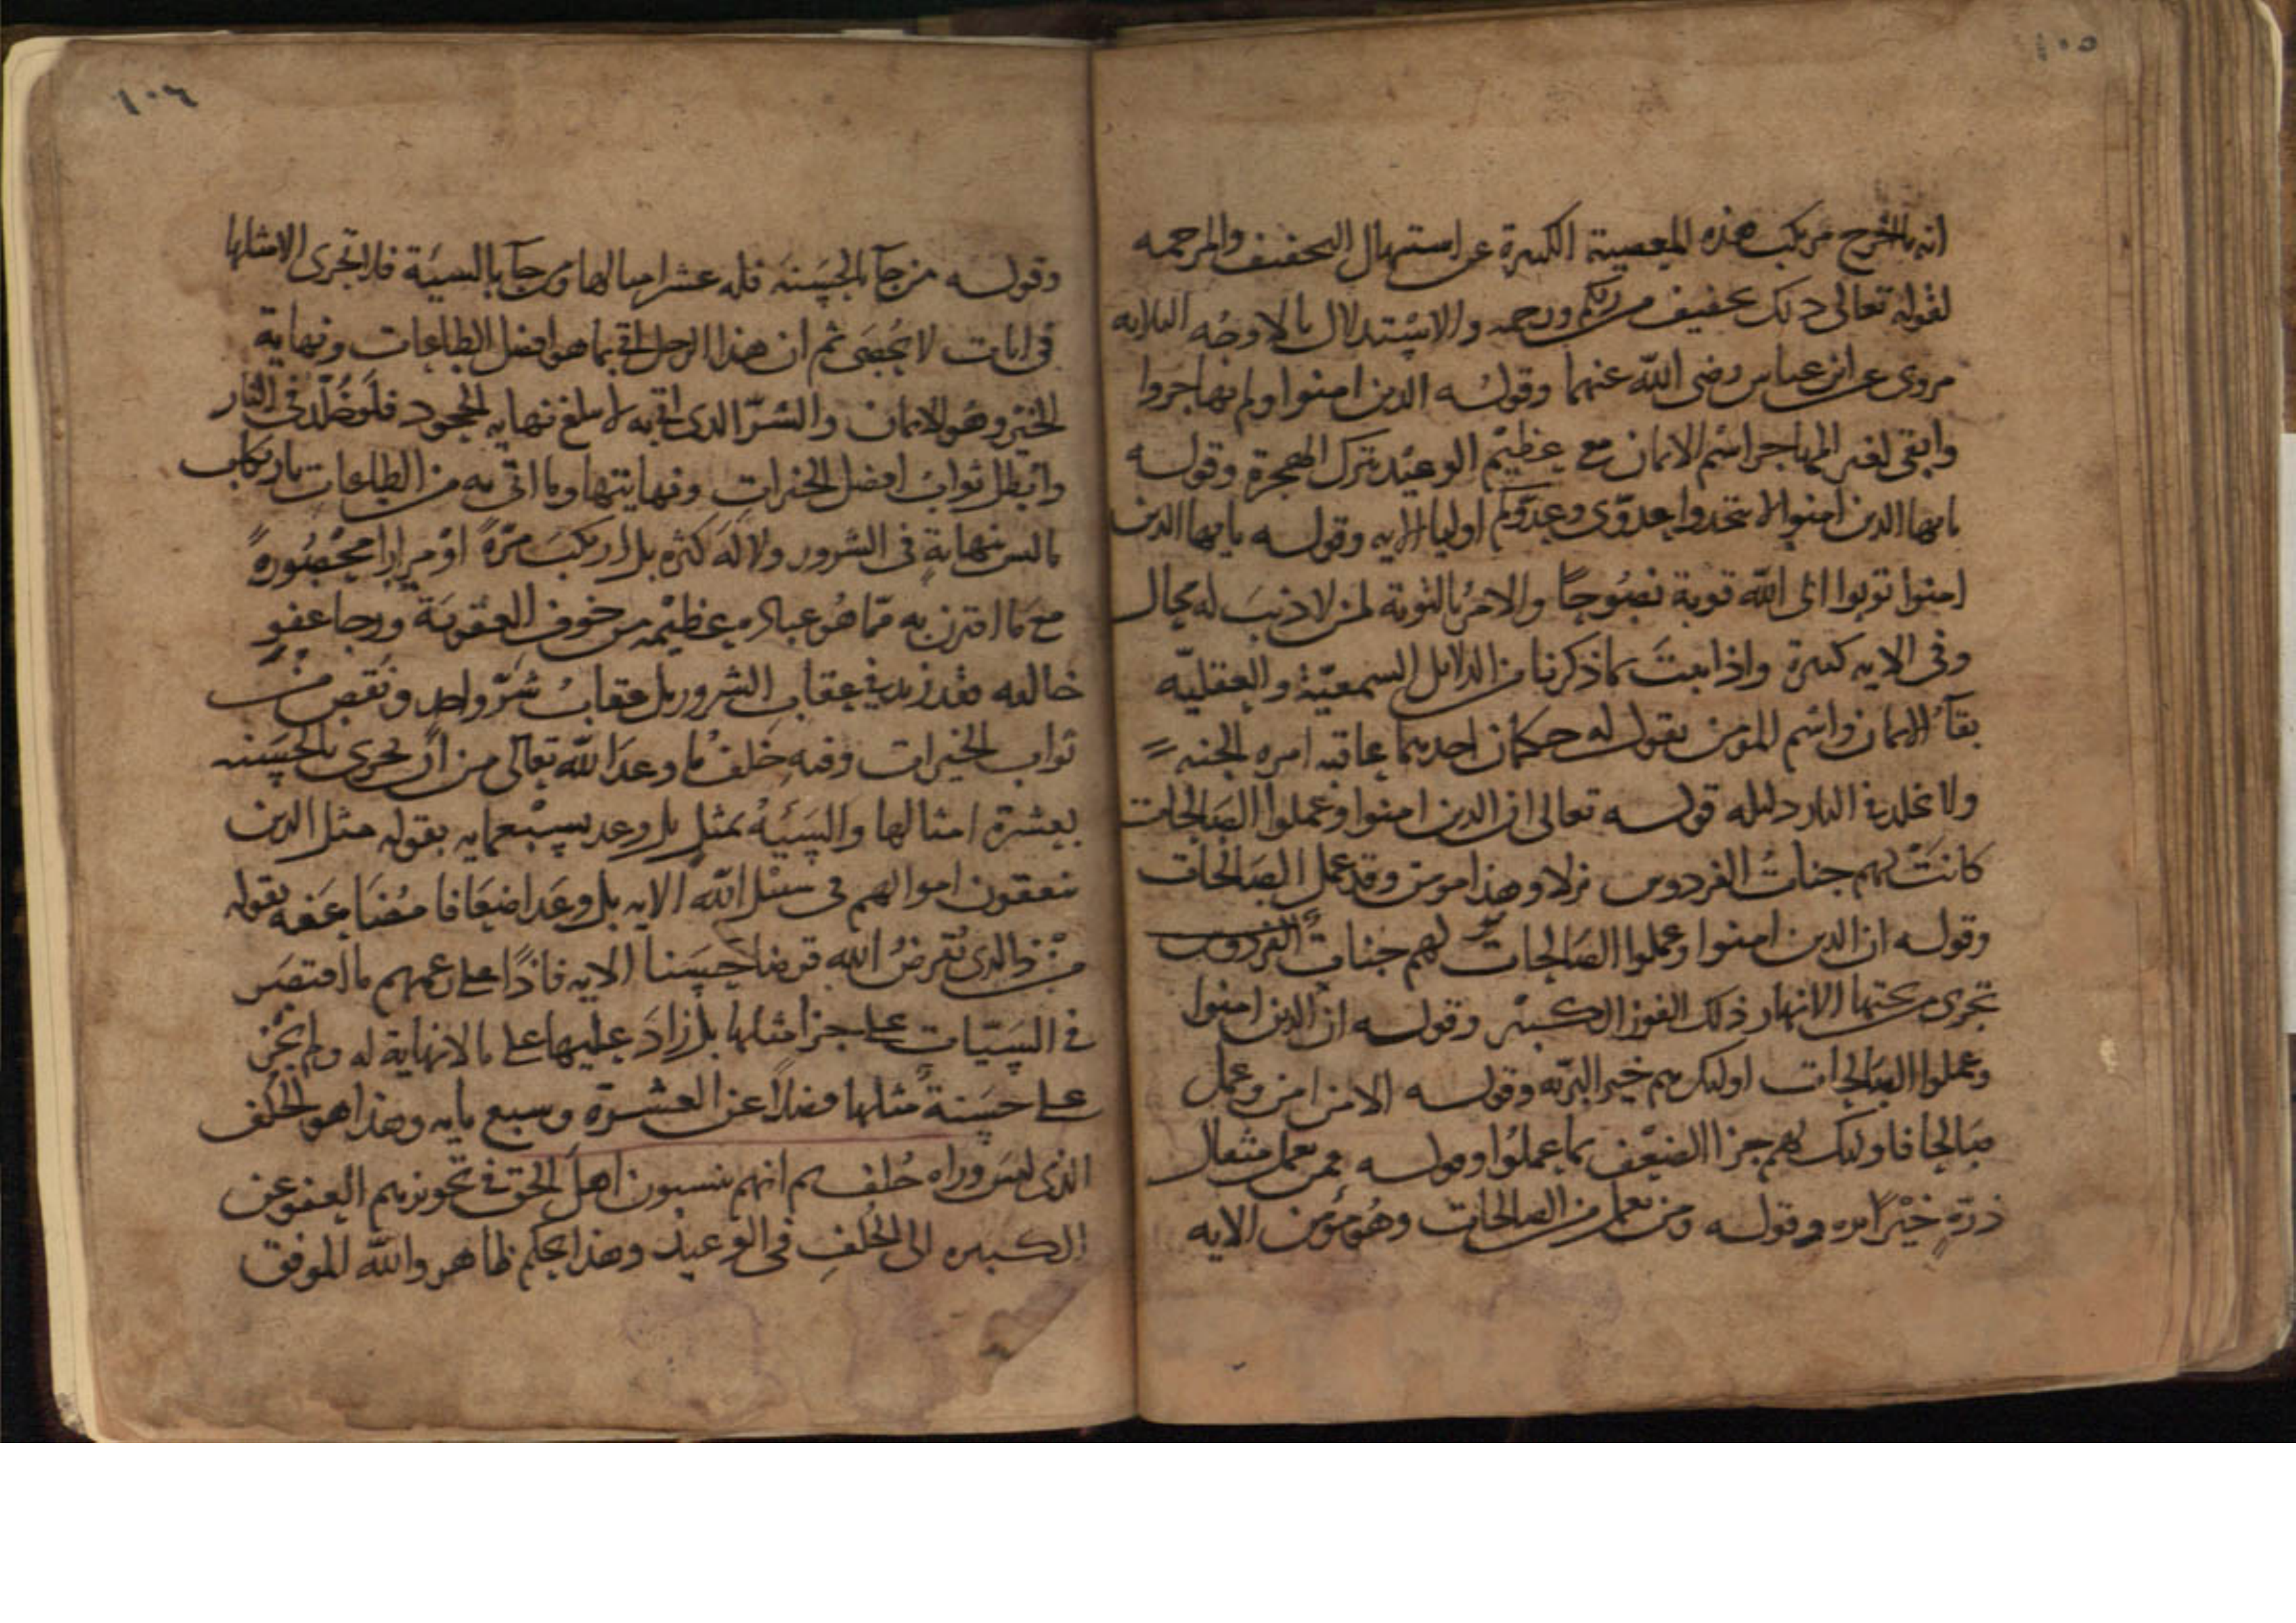 ١٠٥
انه لم يخرج مرتكب هذه المعصية الكبيرة عن استيهال التخفيف والمرحمه
لقوله تعالى ذلك تخفيف من ربكم ورحمه والاستدلال بالاوجه الثلاثه
مروى عن ابن عباس رضى الله عنهما وقوله الذين امنوا ولم يهاجروا
وابقى لغير المهاجر اسم الايمان مع عظيم الوعيد بترك الهجرة وقوله
يا ايها الذين امنوا لا تتخذوا عدوى وعدوكم اوليا الايه وقوله يا ايها الذين
امنوا توبوا الى الله توبة نصوحا والامر بالتوبة لمن لا ذنب له محال
وفى الايه كثيرة واذا ثبت بما ذكرنا من الدلايل السمعية والعقلية
بقآ الايمان واسم المومن نقول له حكمان احدهما عاقبه امره الجنه
ولا يخلد فى النار دليله قوله تعالى ان الذين امنوا وعملوا الصالحات
كانت لهم جنات الفردوس نزلا وهذا مومن وقد عمل الصالحات
وقوله ان الذين امنوا وعملوا الصالحات لهم جنات الفردوس
تجرى من تحتها الانهار ذلك الفوز الكبير وقوله ان الذين امنوا
وعملوا الصالحات اوليك هم خير البرية وقوله الا من امن وعمل
صالحا فاوليك لهم جزا الضعف بما عملوا وقوله فمن يعمل مثقال
ذرة خيرا يره وقوله ومن يعمل من الصالحات وهو مؤمن الايه
١٠٦
وقوله من جآ بالحسنة فله عشر امثالها ومن جآ بالسيئة فلا يجزى الا مثلها
فى ايات لا تحصى ثم ان هذا الرجل اتى بما هو افضل الطاعات ونهاية
الخير وهو الايمان والشر الذى اتى به لم يبلغ نهايه الجحود فلو خلد فى النار
وابطل ثواب افضل الخيرات ونهايتها وما اتى به من الطاعات بارتكاب
ما ليس بنهاية فى الشرور ولا له كثرة بل ارتكب مرة او مرارا محصورة
مع ما اقترن به مما هو عبادة عظيمه من خوف العقوبة ورجا عفو
خالقه فقد زيد فى عقاب الشرور بل عقاب شر واحد ونقص من
ثواب الخيرات وفيه خلف ما وعد الله تعالى من ان يجزى بالحسنه
بعشرة امثالها والسيئة بمثل بل وعد بسبعمايه بقوله مثل الذين
ينفقون اموالهم فى سبيل الله الايه بل وعد اضعافا مضاعفه بقوله
من ذا الذى يقرض الله قرضا حسنا الايه فاذا على زعمهم ما اقتصر
فى السيات على جزا مثلها بل زاد عليها على ما لا نهاية له ولم يجز
على حسنة مثلها فضلا عن العشرة وسبع مايه وهذا هو الخلف
الذى ليس وراه خلف ثم انهم ينسبون اهل الحق فى تجويزهم العفو عن
الكبيره الى الخلف فى الوعيد وهذا تحكم ظاهر والله الموفق